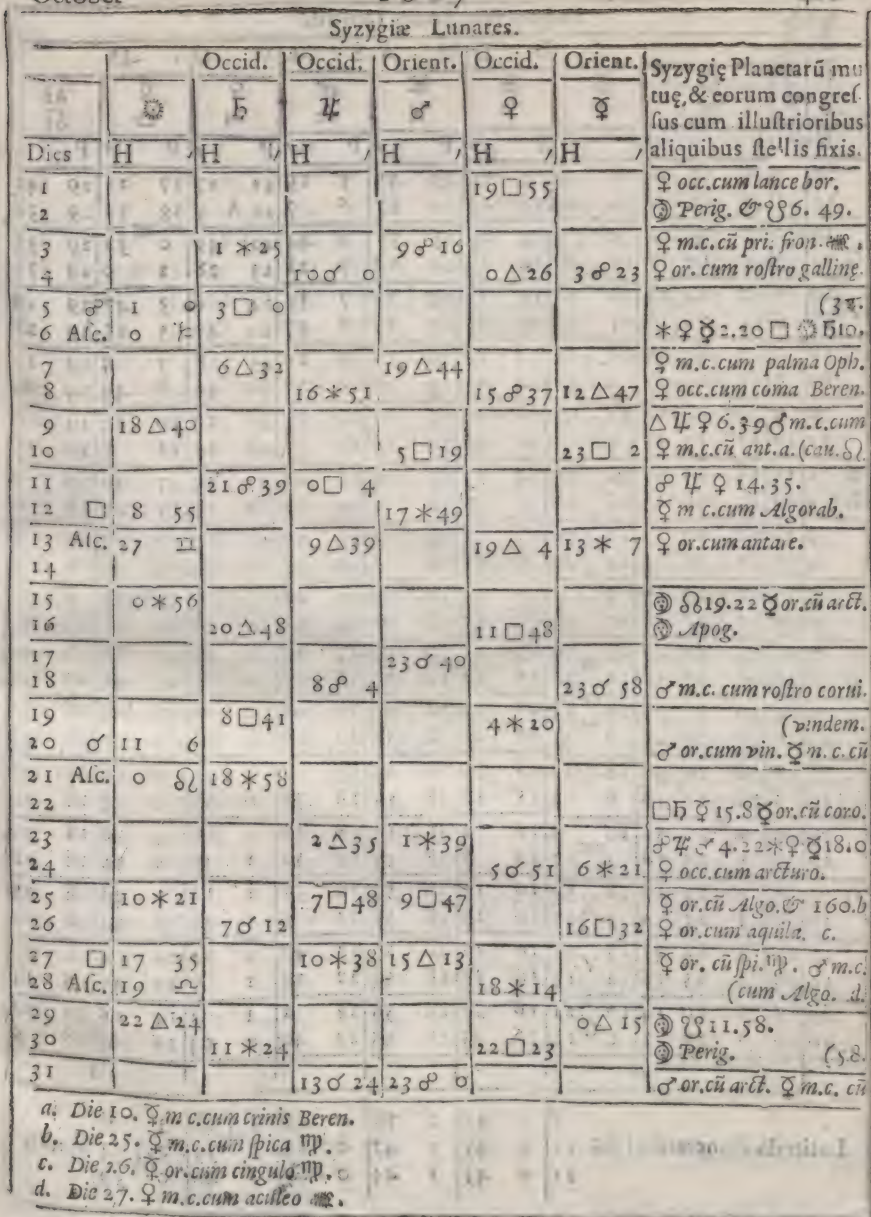 October
Syzygiæ Lunares.
Occid. Occid. Orient. Occid. Orient. Syzygię Planetarū mu
☉ ♄ ♃ ♂ ♀ ☿ tuę, & eorum congreſ-
ſus cum illuſtrioribus
Dies H ′ H ′ H ′ H ′ H ′ H ′ aliquibus ſtellis fixis.
1 19 □ 55 ♀ occ.cum lance bor.
2 ☽ Perig. & ☋ 6. 49.
3 1 ⚹ 25 9 ☍ 16 ♀ m.c.cū pri. fron.
4 10 ☌ 0 0 △ 26 3 ☍ 23 ♀ or. cum roſtro gallinę.
5 ☍ 1 3 □ 0
6 Aſc. 0 ⚹ ♀ ☿ 2.20 □ ☉ ♄ 10.
7 6 △ 32 19 △ 44 ♀ m.c.cum palma Oph.
8 16 ⚹ 51 15 ☍ 37 12 △ 47 ♀ occ.cum coma Beren.
9 18 △ 40 △ ♃ ♀ 6.39 ♂ m.c.cum
10 5 □ 19 23 □ 2 ♀ m.c.cū ant.a. (cau. ♌
11 21 ☍ 39 0 □ 4 ☍ ♃ ♀ 14.35.
12 □ 8 55 17 ⚹ 49 ☿ m c.cum Algorab.
13 Aſc. 27 ♊ 9 △ 39 19 △ 4 13 ⚹ 7 ♀ or.cum antare.
14
15 0 ⚹ 56 ☽ ☊ 19.22 ☿ or.cū arct.
16 20 △ 48 11 □ 48 ☽ Apog.
17 23 ☌ 40
18 8 ☍ 4 23 ☌ 58 ♂ m.c. cum roſtro corui.
19 8 □ 41 4 ⚹ 20 (vindem.
20 ☌ 11 6 ♂ or.cum vin. ☿ m. c. cū
21 Aſc. 0 ♌ 18 ⚹ 58
22 □ ♄ ☿ 15.8 ☿ or.cū coro.
23 2 △ 35 1 ⚹ 39 ☍ ♃ ♂ 4.22 ⚹ ♀ ☿ 18.0
24 5 ☌ 51 6 ⚹ 21 ♀ occ.cum arcturo.
25 10 ⚹ 21 7 □ 48 9 □ 47 ☿ or.cū Algo. & 160.b
26 7 ☌ 12 16 □ 32 ♀ or.cum aquila. c.
27 □ 17 35 10 ⚹ 38 15 △ 13 ☿ or. cū ſpi. ♍. ♂ m.c.
28 Aſc. 19 ♎ 18 ⚹ 14 (cum Algo. d.
29 22 △ 24 0 △ 15 ☽ ☋ 11.58.
30 11 ⚹ 24 22 □ 23 ☽ Perig. (5.8.
31 13 ☌ 24 23 ☍ 0 ♂ or.cū arct. ☿ m.c. cū
a. Die 10. ☿ m c.cum crinis Beren.
b. Die 25. ☿ m.c.cum ſpica ♍.
c. Die 26. ☿ or.cum cingulo ♍.
d. Die 27. ♀ m.c.cum aculeo